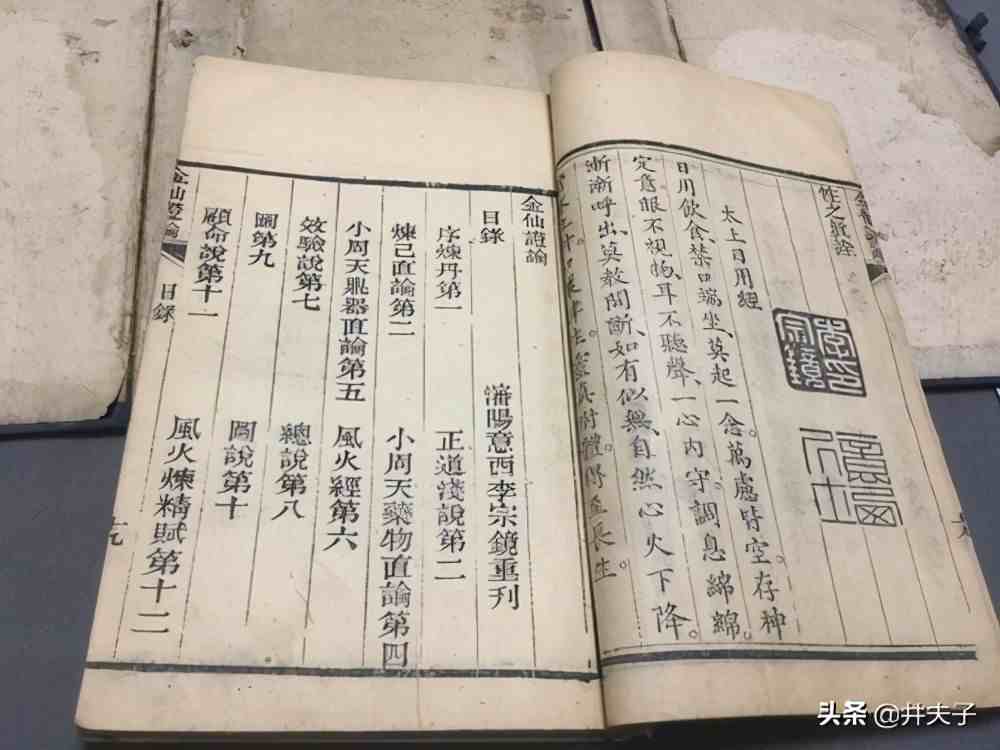 太上日用經
日用飲食、禁口端坐、莫起一念。萬慮皆空、存神
定意、眼不視物、耳不聽聲、一心內守。調息綿綿。
漸漸呼出、莫教間斷、如有似無、自然心火下降。
津生。靈真附體。得至長生。
李印宗鏡
金仙證論
目錄 瀋陽意西李宗鏡重刊
序煉丹第一 正道淺說第二
煉己直論第三 小周天藥物直論第四
小周天鼎器直論第五 風火經第六
效驗說第七 總說第八
圖第九 圖說第十
顧命說第十一 風火煉精賦第十二
金仙證論 目錄
头条 @井夫子